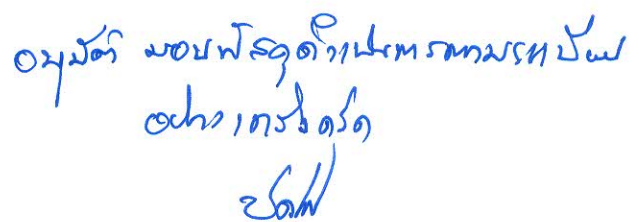 อนุมัติ มอบพัสดุดำเนินการตามระเบียบ
อย่างเคร่งครัด